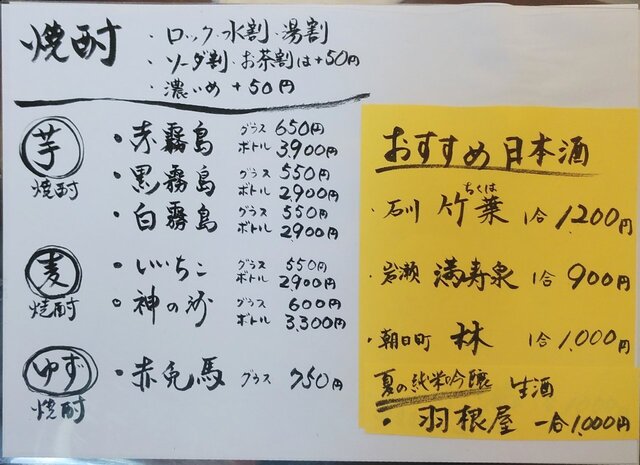 焼酎
・ロック・水割・湯割
・ソーダ割・お茶割は+50円
・濃いめ +50円
芋焼酎
・赤霧島 グラス 650円
ボトル 3,900円
・黒霧島 グラス 550円
ボトル 2,900円
・白霧島 グラス 550円
ボトル 2900円
麦焼酎
・いいちこ グラス 550円
ボトル 2900円
・神の河 グラス 600円
ボトル 3,300円
ゆず焼酎
・赤兎馬 グラス 750円
おすすめ日本酒
ちくは
・石川 竹葉 1合 1,200円
・岩瀬 満寿泉 1合 900円
・朝日町 林 1合 1,000円
夏の純米吟醸 生酒
・羽根屋 一合 1,000円